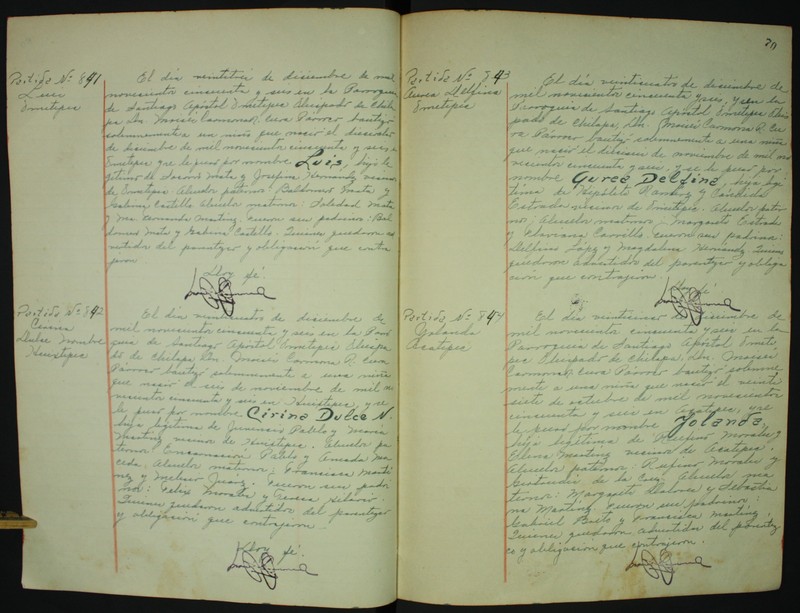 Partida No 841
Luis
Ometepec
El día veintitrés de diciembre de mil
novecientos cincuenta y seis en la Parroquia
de Santiago Apóstol Ometepec Obispado de Chila
pa Dn. Moisés Carmona R. Cura Párroco bautizó
solemnemente a un niño que nació el dieciséis
de diciembre de mil novecientos cincuenta y seis en
Ometepec y se le puso por nombre Luis, hijo le
gítimo de Mata y Josefina Hernández vecinos
de Ometepec Abuelos paternos: Baldomero Mata y
Sabina Castillo Abuelos maternos: Soledad Mata
y Martínez, fueron sus padrinos: Bal
domero Mata y Sabina Castillo. Quienes quedaron ad
vertidos del parentezco y obligación que contra
jeron
Doy fé
Partida No 842
Cirina
Dulce Nombre
Huistepec
El día veintitrés de diciembre de
mil novecientos cincuenta y seis en la Parro
quia de Santiago Apóstol Ometepec Obispa
do de Chilapa Dn. Moisés Carmona R. Cura
Párroco bautizó solemnemente a una niña
que nació el seis de noviembre de mil no
vecientos cincuenta y seis en Huistepec, y se
le puso por nombre Cirina Dulce N.
hija legítima de Patilo y María
Martínez vecinos de Huistepec. Abuelos pa
ternos: Encarnación Patilo y Amada Ma
ceda. Abuelos maternos: Francisca Martí
nez y Melesio Juárez. Fueron sus padri
nos: Félix Morales y Hilario.
Quienes quedaron advertidos del parentezco
y obligación que contrajeron
Doy fé.
70
Partida No 843
Aurea Delfina
Ometepec
El día veinticuatro de diciembre de
mil novecientos cincuenta y seis, y en la
Parroquia de Santiago Apóstol Ometepec Obis
pado de Chilapa, Dn. Moisés Carmona R. Cu
ra Párroco bautizó solemnemente a una niña
que nació el de noviembre de mil no
vecientos cincuenta y seis, y se le puso por
nombre Aurea Delfina, hija legí
tima de Hipólito Ramírez y Cándida
Estrada vecinos de Ometepec. Abuelos pater
nos: Abuelos maternos: Margarito Estrada
y Mariana Carrillo. Fueron sus padrinos:
Delfino López y Magdalena Hernández. Quienes
quedaron advertidos del parentezco y obliga
ción que contrajeron.
Doy fé
Partida No 844
Yolanda
Acatepec
El día veinticinco de diciembre de
mil novecientos cincuenta y seis en la
Parroquia de Santiago Apóstol Omete
pec Obispado de Chilapa, Dn. Moisés
Carmona R. Cura Párroco bautizó solemne
mente a una niña que nació el veinti
siete de octubre de mil novecientos
cincuenta y seis en Acatepec, y se
le puso por nombre Yolanda,
hija legítima de Rufino Morales y
Elena Martínez vecinos de Acatepec.
Abuelos paternos: Rufino Morales y
de la Cruz. Abuelos ma
ternos: Margarito y Sebastia
na Martínez. Fueron sus padrinos:
Gabriel y Francisca Martínez.
Quienes quedaron advertidos del parentez
co y obligación que contrajeron.